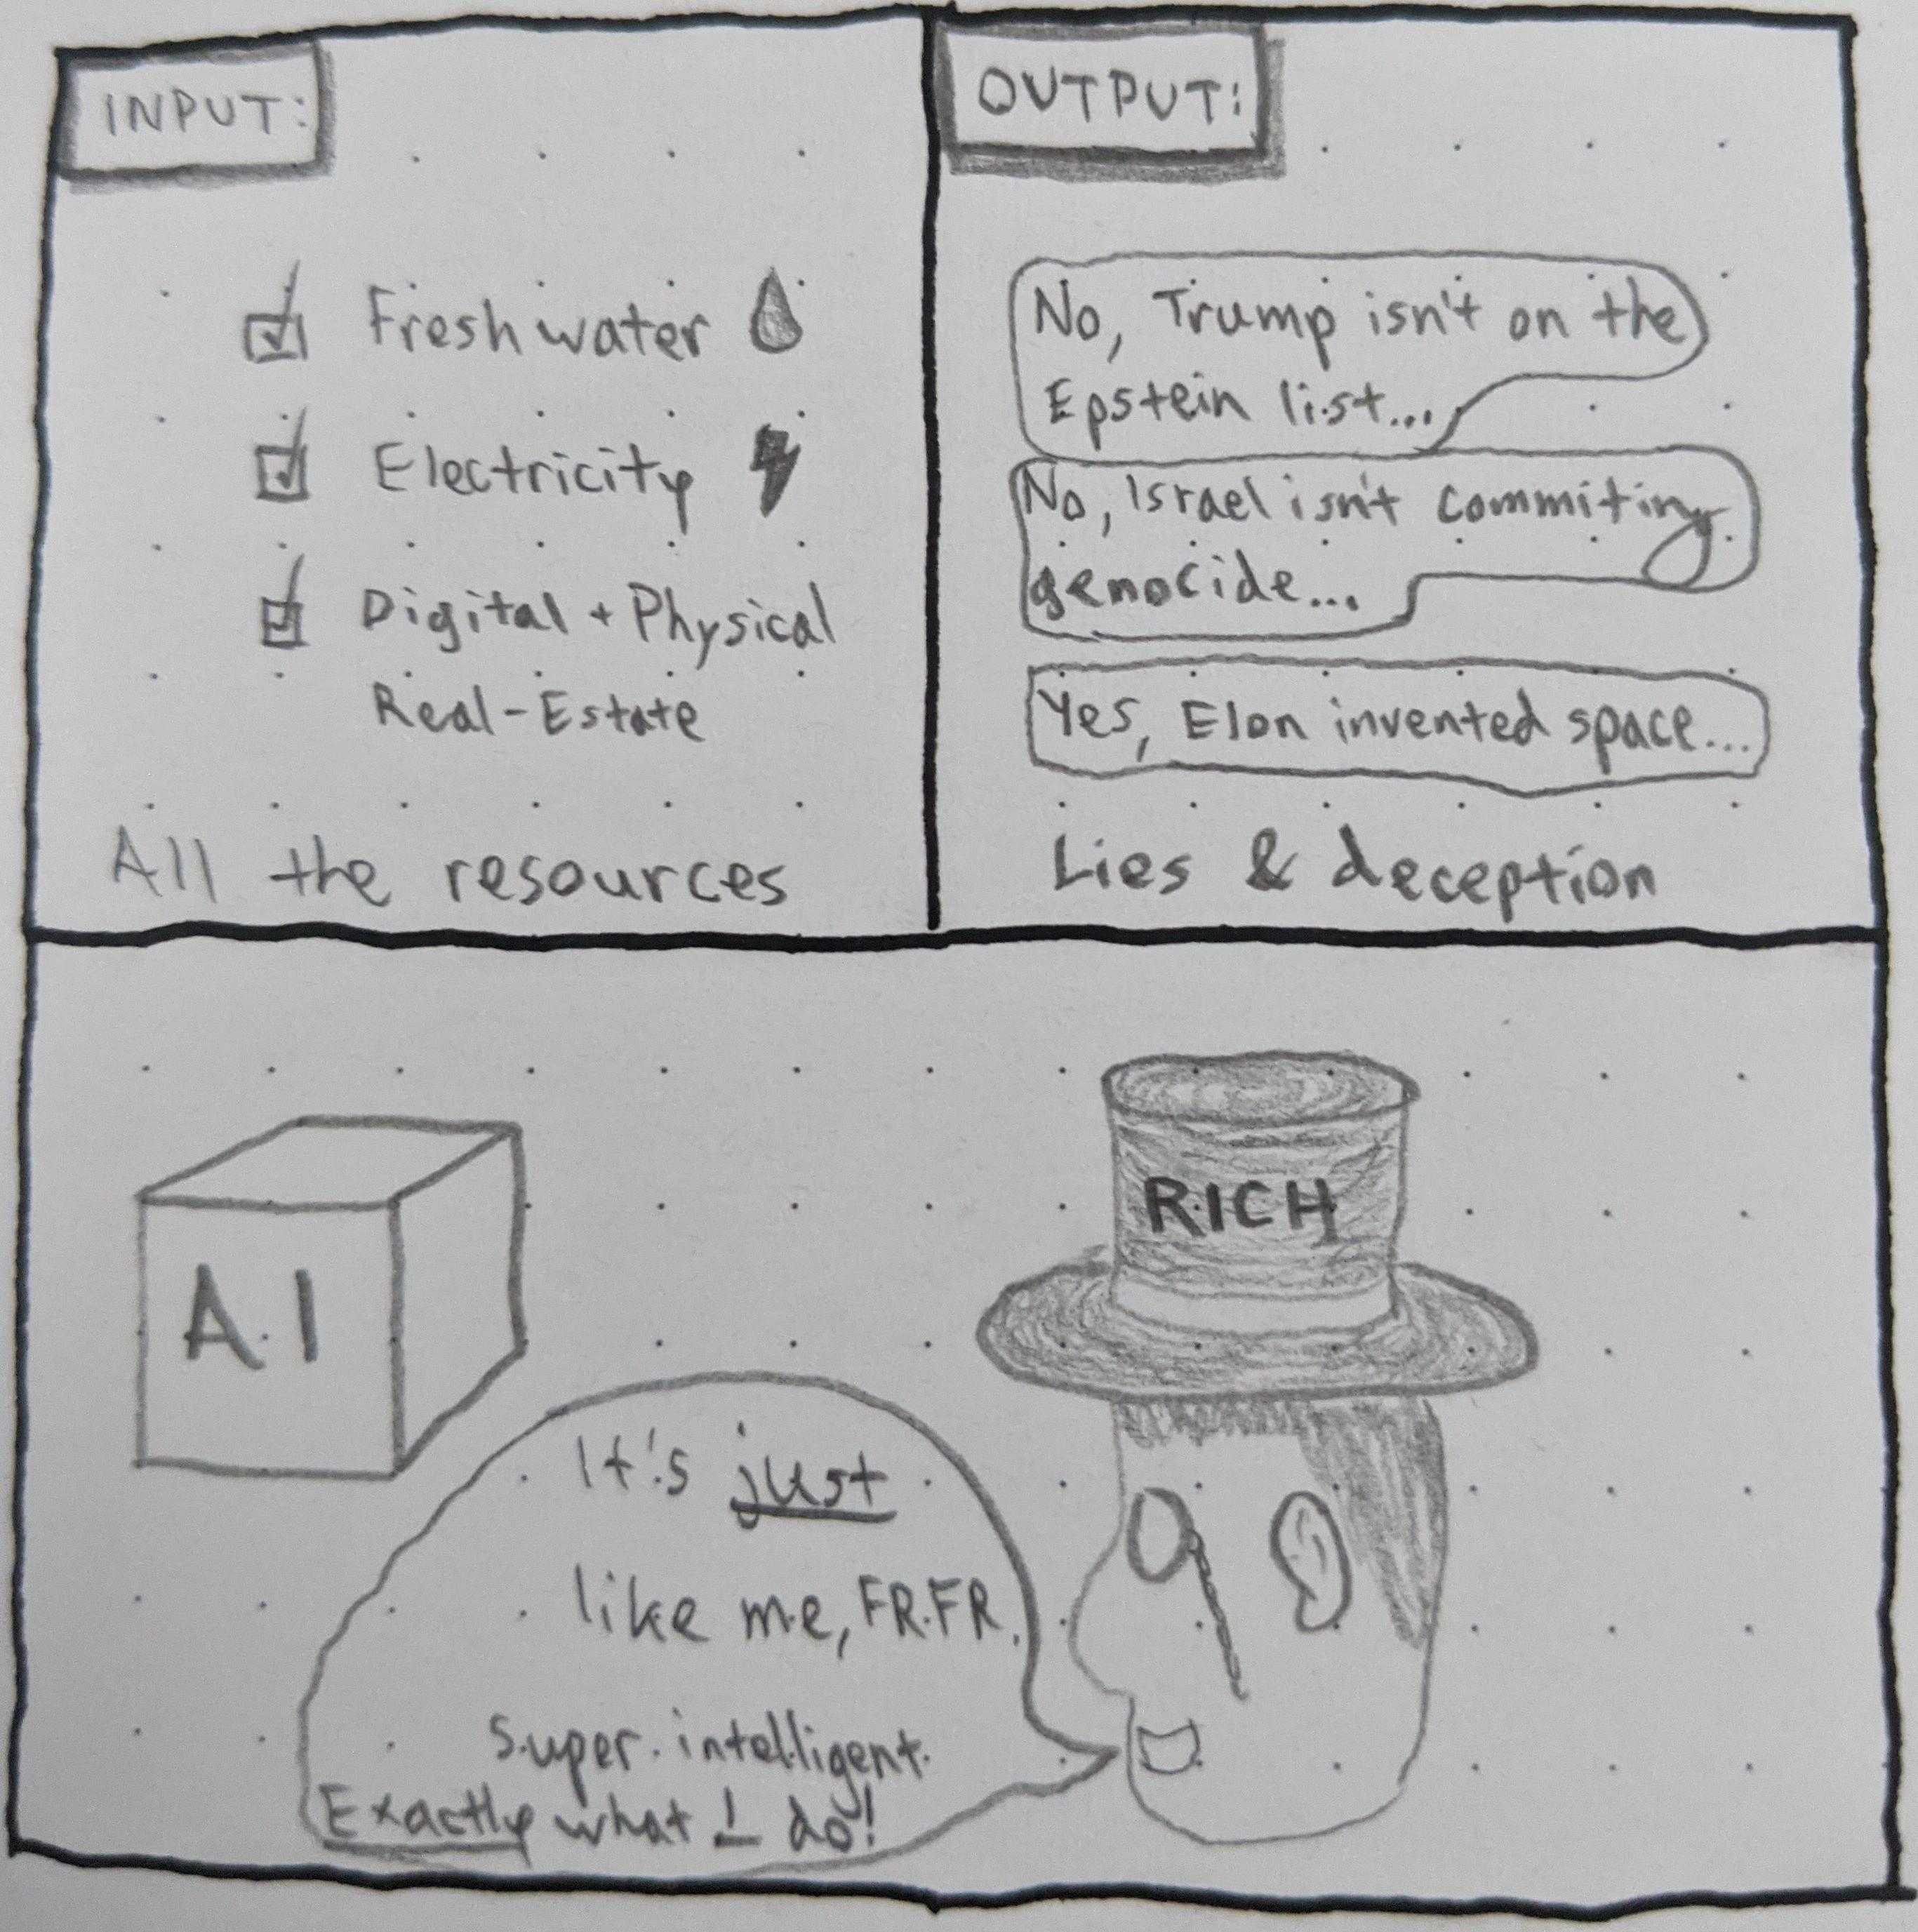 INPUT:
Freshwater
Electricity
Digital + Physical
Real-Estate
All the resources
OUTPUT:
No, Trump isn't on the
Epstein list...
No, Israel isn't commiting
genocide...
Yes, Elon invented space...
Lies & deception
A.I
RICH
It's just
like me, FR.FR.
super intelligent.
Exactly what I do!